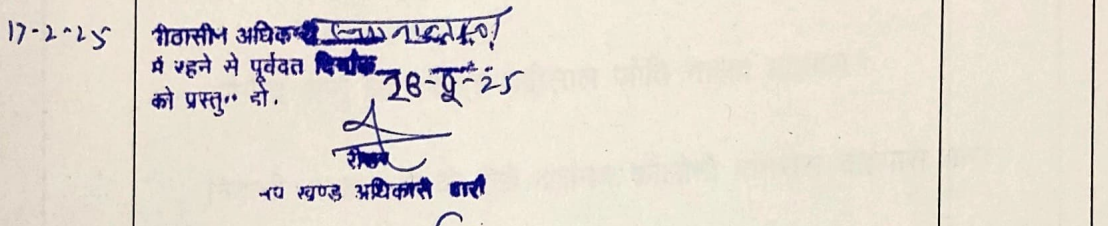 17-2-25
पीठासीन अधिकारी
में रहने से पूर्ववत दिनांक
28-2-25
को प्रस्तु.. हो.
रीडर
उप खण्ड अधिकारी बारी